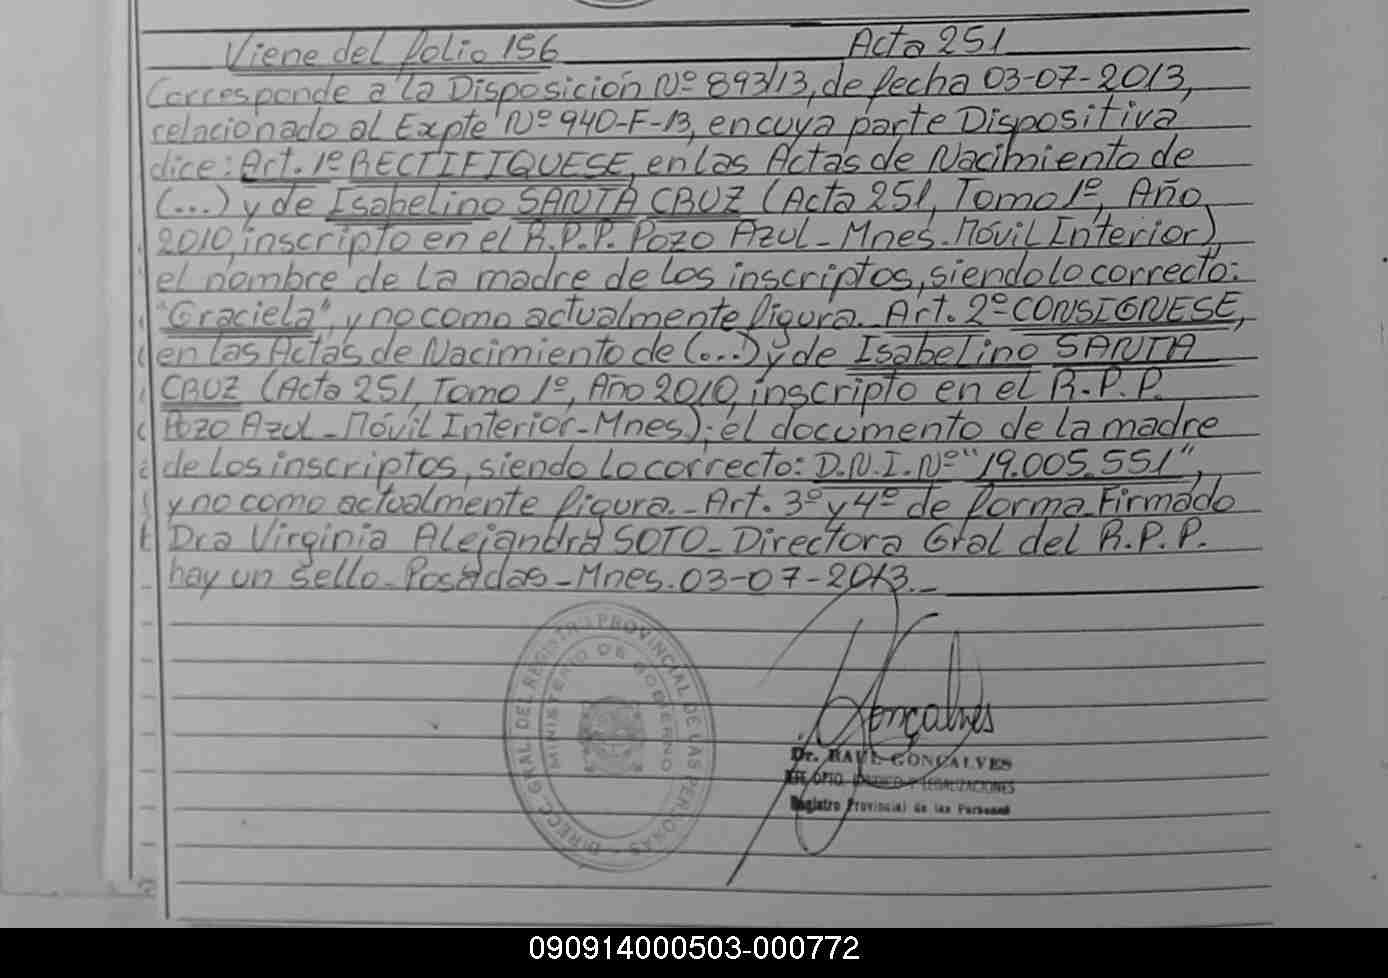 Viene del folio 156 Acta 251
Corresponde a la Disposición Nº 893/13, de fecha 03-07-2013,
relacionado al Expte Nº 940-F-13, en cuya parte Dispositiva
dice: Art. 1º RECTIFIQUESE, en las Actas de Nacimiento de
(...) y de Isabelino SANTA CRUZ (Acta 251, Tomo 1º, Año
2010, inscripto en el R.P.P. Pozo Azul - Mnes. Móvil Interior)
el nombre de la madre de los inscriptos, siendo lo correcto:
"Graciela", y no como actualmente figura. Art. 2º CONSIGNESE,
en las Actas de Nacimiento de (...) y de Isabelino SANTA
CRUZ (Acta 251, Tomo 1º, Año 2010, inscripto en el R.P.P.
Pozo Azul - Móvil Interior - Mnes); el documento de la madre
de los inscriptos, siendo lo correcto: D.N.I. Nº "19.005.551",
y no como actualmente figura. - Art. 3º y 4º de forma. Firmado
Dra Virginia Alejandra SOTO - Directora Gral del R.P.P.
hay un sello. Posadas - Mnes. 03-07-2013. -
DIRECC. GRAL. DEL REGISTRO PROVINCIAL DE LAS PERSONAS
MINISTERIO DE GOBIERNO
Gonçalves
Dr. RAUL GONÇALVES
JEFE DPTO. JURIDICO Y LEGALIZACIONES
Registro Provincial de las Personas
090914000503-000772